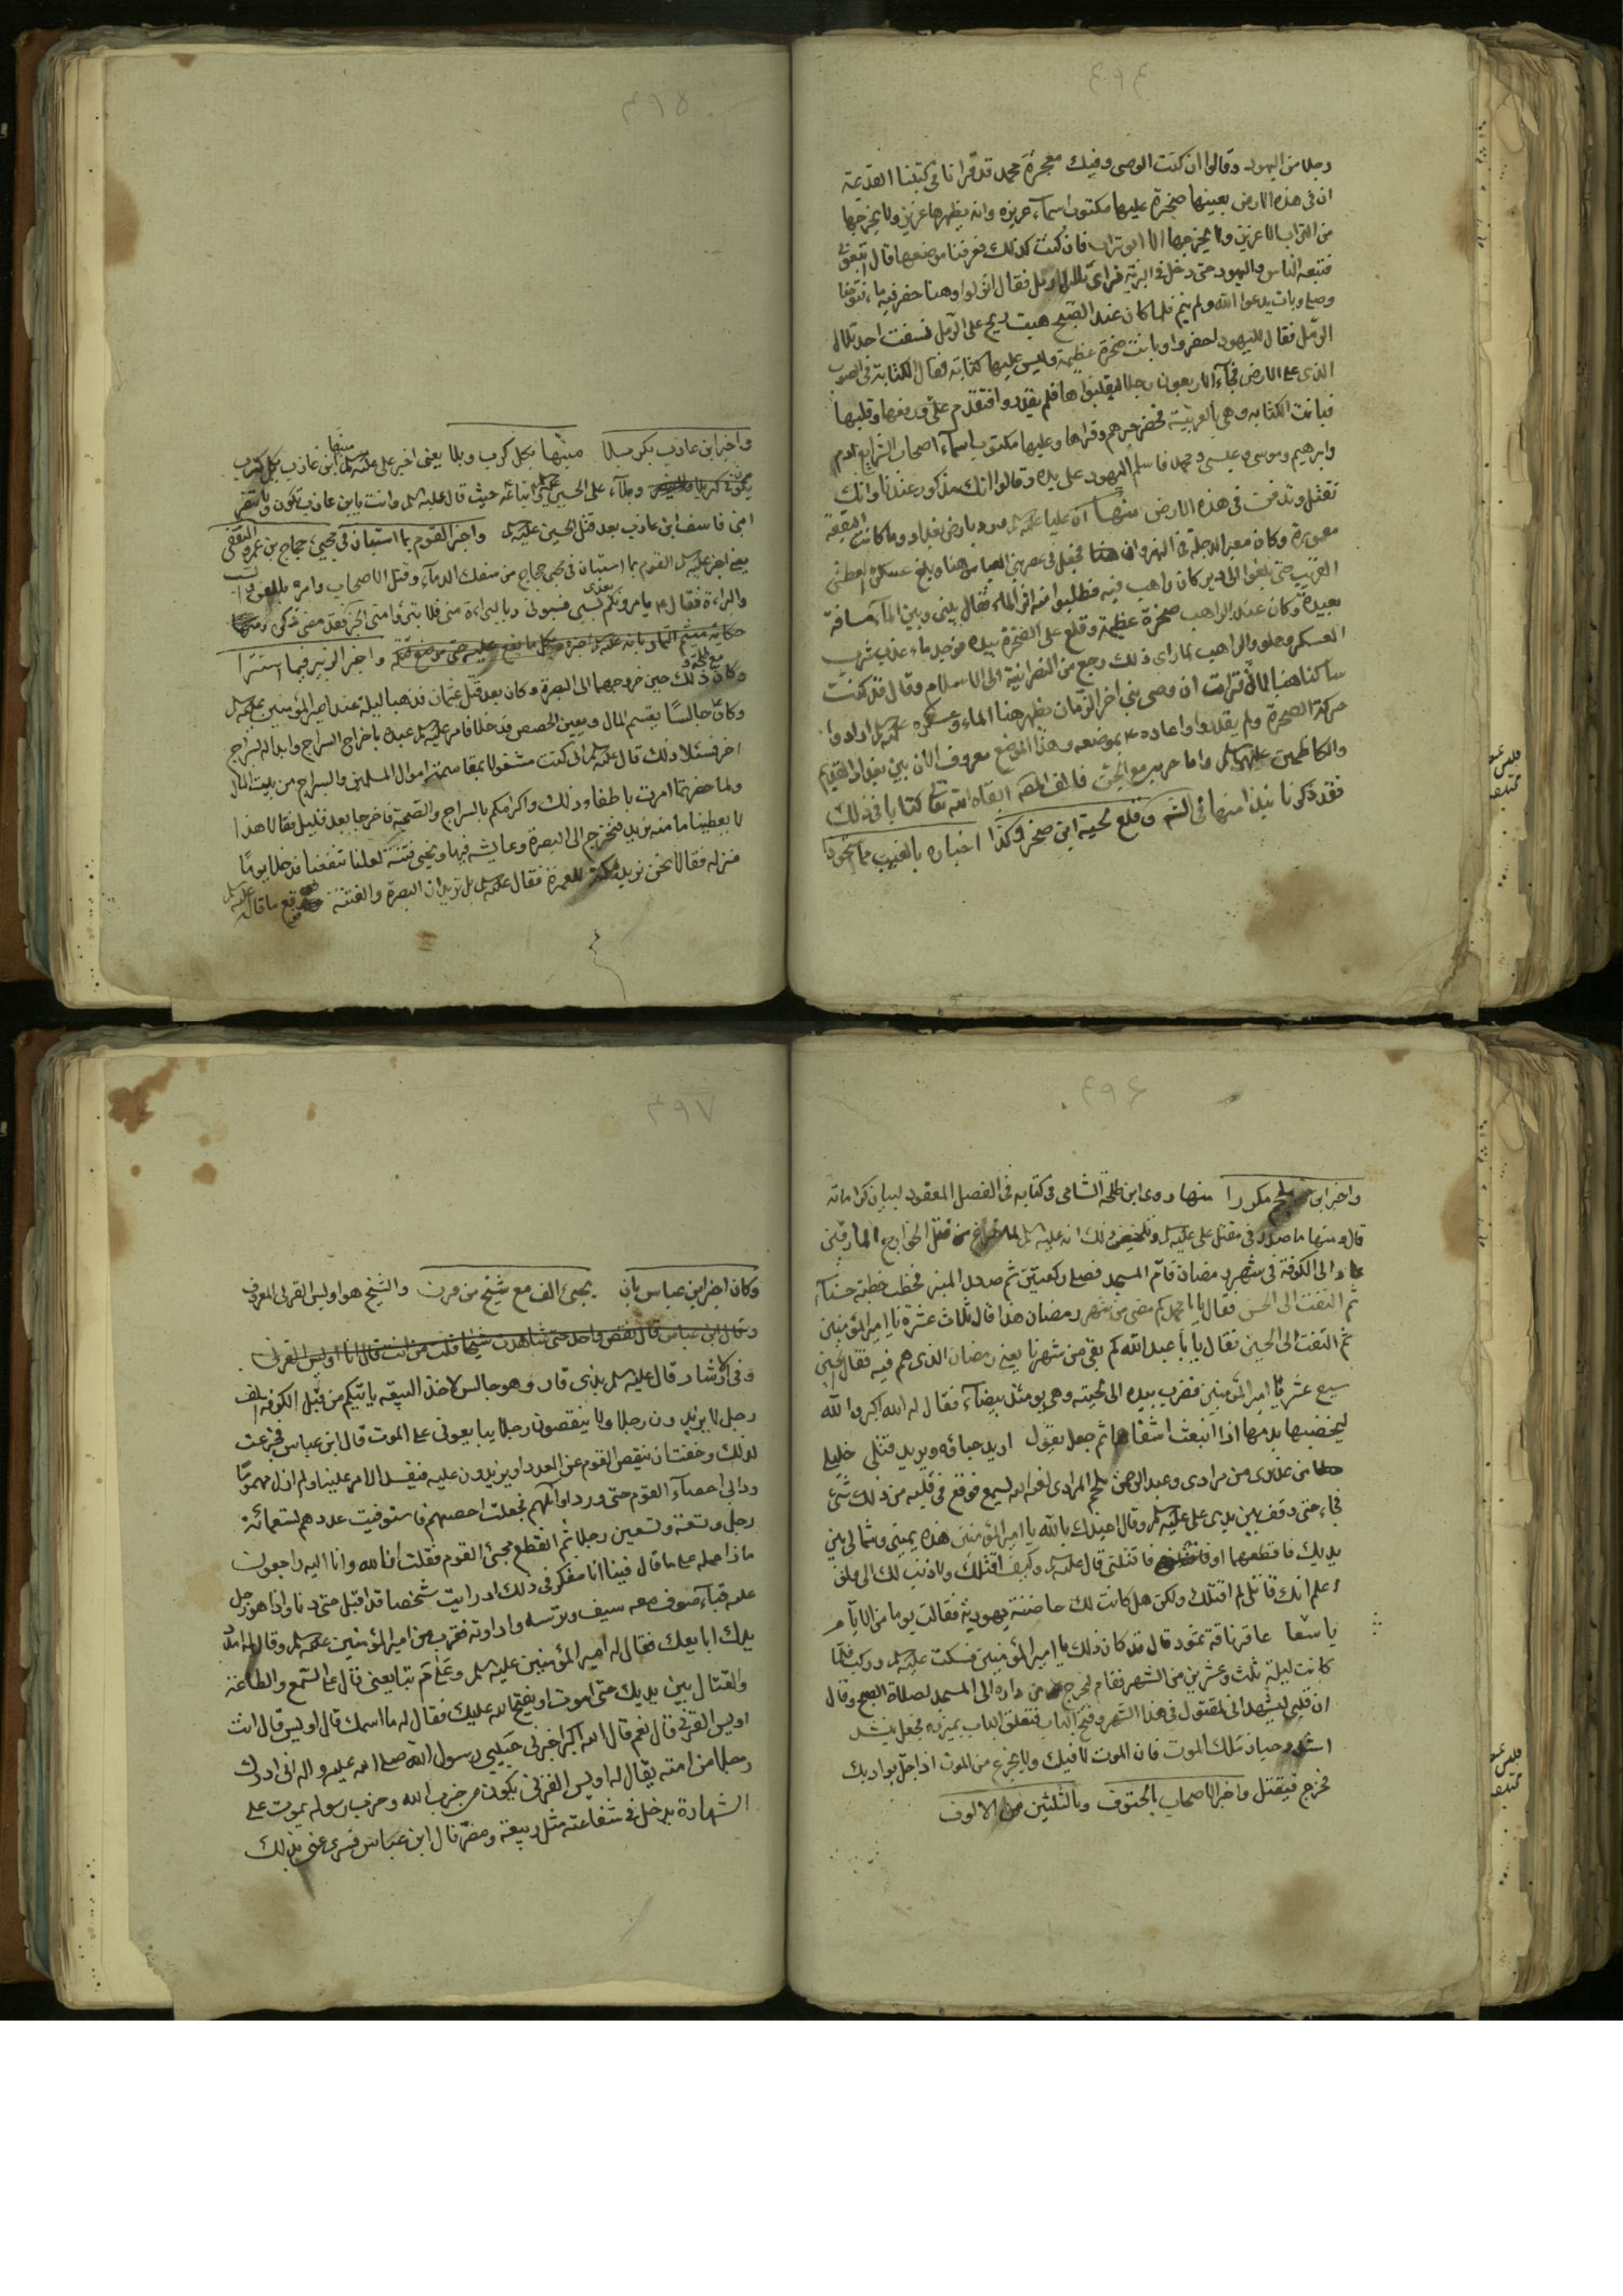 ٤٩٤
رجلا من اليهود وقالوا ان كنت الوصى وفيك معجزة محمد قد قرانا فى كتبنا القديمة
ان فى هذه الارض بعينها صخرة عليها مكتوب اسماء عزيزه وانه يظهرها عزيز ولا يخرجها
من التراب الا عزيز ولا يخرجها الا ابو تراب فان كنت كذلك فعرفنا موضعها قال اتبعونى
فتبعه الناس واليهود حتى دخل فى البرية فراى تلال الرمل فقال انزلوا وهنا حفر فيه ماء فتوضا
وصلى وبات يدعوا الله ولم ينم فلما كان عند الصبح هبت ريح على الرمل فنسفت احد تلال
الرمل فقال لليهود احفروا وبانت صخرة عظيمة وليس عليها كتابة فقال الكتابة فى الصوب
الذى على الارض فجاء الاربعون رجلا ليقلبوها فلم يقدروا فتقدم على ودفعها وقلبها
فبانت الكتابه وهى بالعربية فحضر وقراها وعليها مكتوب اسماء اصحاب الشرايع ادم
وابرهيم وموسى وعيسى ومحمد فاسلم اليهود على يده وقالوا انك مذكور عندنا وانك
تقتل وتدفن فى هذه الارض منها ان عليا عليه السلم مر بارض بغداد وما كانت البقعة
معمورة وكان معبر الدجلة فى النهروان فجعل فى عصر بنى العباس هنا وبلغ عسكره العطش
القريب حتى بلغوا الى دير كان راهب فيه فطلبوا منه اثر الماء فقال بينى وبين الماء مسافة
بعيدة وكان عند الراهب صخرة عظيمة وقلع على الصخرة بيده فوجد ماء عذب شرب
العسكر وحلو والراهب لما راى ذلك رجع من النصرانية الى الاسلام وقال قد كنت
ساكنا هنا لما قرات ان وصى نبى اخر الزمان يظهر هنا الماء وعسكره عليه السلم ارادوا
حركة الصخرة ولم يقدروا واعاده بموضعه وهذا الموضع معروف الان بين بغداد القديم
والكاظمين عليهما السلم واما حربه مع الجن فالف القاه الله تعالى كتابا فى ذلك
فقد ذكرنا نبذا منها فى وقلع لحية ابن صخر وكذا اخباره بالغيب
٤٩٥
واخبر ابن عازب بكربلا منها بكل كرب وبلا يعنى اخبر على عليه السلم ابن عازب بكل كرب
يكون وبلاء على الحسين واتباعه حيث قال عليه السلم وانت يابن عازب تكون ولا تنصر
ابنى فاسف ابن عازب بعد قتل الحسين عليه السلم واخبر القوم بما استبان فى مجيئ حجاج بن عمرو الثقفى
يعنى اخبر عليه السلم القوم بما استبان فى مجئ حجاج من سفك الدماء وقتل الاصحاب وامره
والبراءة فقال ع يامرونكم بعدى بسبى فسبونى وبالبراءة منى فلا تتبرؤا منى الخبر فقد مضى ذكره
حكاية ميثم التمار بانه عليه السلم اخبره بكل ما يقع عليه حتى موضع قتله واخبر الزبير فيما استترا
وكان ذلك مع طلحة حين خروجهما الى البصرة وكان بعد قتل عثمان قد هبا ليلة عند امير المؤمنين عليه السلم
وكان جالسا يقسم المال ويعين الحصص قد خلا فامر عليه السلم عبده باخراج السراج وابداله بسراج
اخر فسئلا ذلك قال عليه السلم انى كنت مشغولا بمقاسمة اموال المسلمين والسراج من بيت المال
ولما حضرتما امرت باطفاء ذلك واكرامكم بالسراج والصحبة فاخرجا بعد قليل فقالا هذا
لا يعطينا ما منه نريد فنخرج الى البصرة وعايشه فيها ويجئى فتنة لعلنا ننفعنا فدخلا يوما
منزله فقالا نحن نريد مكة للعمرة فقال عليه السلم بل تريدان البصرة والفتنة وقع ما قال عليه السلم
٤٩٦
واخبر ابن ملجم مكورا منها روى ابن طلحة الشامى فى كتابه فى الفصل المعقود لبيان كراماته
قال ومنها ما صدر فى مقتل على عليه السلم وتلخيص ذلك انه عليه السلم لما فرغ من قتل الخوارج المارقين
عاد الى الكوفة فى شهر رمضان قام المسجد فصلى ركعتين ثم صعد المنبر فخطب خطبة حسناء
ثم التفت الى الحسن فقال يا با محمد كم مضى من شهر رمضان هذا قال ثلاث عشرة يا امير المؤمنين
ثم التفت الى الحسين فقال يا با عبد الله كم بقى من شهرنا يعنى رمضان الذى هم فيه فقال الحسين
سبع عشر يا امير المؤمنين فضرب بيده الى لحيته وهى يومئذ بيضاء فقال له الله اكبر والله
ليخضبها بدمها اذا انبعث اشقاها ثم جعل يقول اريد حباؤه ويريد قتلى خليلى
من عذيرى من مرادى وعبد الرحمن بن ملجم المرادى لعنه الله يسمع فوقع فى قلبه من ذلك شئ
فجاء حتى وقف بين يدى على عليه السلم وقال اعيذك بالله يا امير المؤمنين هذه يمينى وشمالى بين
يديك فاقطعهما او فاقتلنى قال عليه السلم وكيف اقتلك ولا ذنب لك الى ولو
اعلم انك قاتلى لم اقتلك ولكن هل كانت لك حاضنة يهودية فقالت يوما من الايام
يا شقا عاقر ناقة ثمود قال قد كان ذلك يا امير المؤمنين فسكت عليه السلم وركب فلما
كانت ليلة ثلث وعشرين من الشهر فقام ليخرج من داره الى المسجد لصلاة الصبح وقال
ان قلبى ليشهد انى لمقتول فى هذا الشهر وفتح الباب فتعلق الباب بميزره فجعل ينشد
اشدد حيازيمك للموت فان الموت لاقيك ولا تجزع من الموت اذا حل بواديك
فخرج فيقتل واخبر الاصحاب بالحتوف وبالثلثين من الالوف
٤٩٧
وكان اخبر ابن عباس بان يجيئ الف مع شيخ من قرن والشيخ هو اويس القرنى المعروف
وقال ابن عباس قال نقص واحد حتى شاهدت شيخا قلت من انت قال انا اويس القرنى
وفى الارشاد قال عليه السلم بذى قار وهو جالس لاخذ البيعه ياتيكم من قبل الكوفه الف
رجل لا يزيدون رجلا ولا ينقصون رجلا يبايعونى على الموت قال ابن عباس فجزعت
لذلك وخفت ان ينقص القوم عن العدد او يزيدون عليه فيفسد الامر علينا ولم ازل مهموما
ودابى احصاء القوم حتى ورد اوائلهم فجعلت احصيهم فاستوفيت عددهم تسعمائة
رجل وتسعة وتسعين رجلا ثم انقطع مجئ القوم فقلت انا لله وانا اليه راجعون
ماذا حمله على ما قال فبينا انا مفكر فى ذلك اذ رايت شخصا قد اقبل حتى دنا واذا هو رجل
عليه قباء صوف معه سيف وترسه واداوته فقرب من امير المؤمنين عليه السلم وقال له امدد
يدك ابايعك فقال له امير المؤمنين عليه السلم وعلام تبايعنى قال على السمع والطاعة
والقتال بين يديك حتى اموت او يفتح الله عليك فقال له ما اسمك قال اويس قال انت
اويس القرنى قال نعم قال الله اكبر اخبرنى حبيبى رسول الله صلى الله عليه واله انى ادرك
رجلا من امته يقال له اويس القرنى يكون من حزب الله وحزب رسوله يموت على
الشهادة يدخل فى شفاعته مثل ربيعة ومضر قال ابن عباس فسرى عنى بذلك